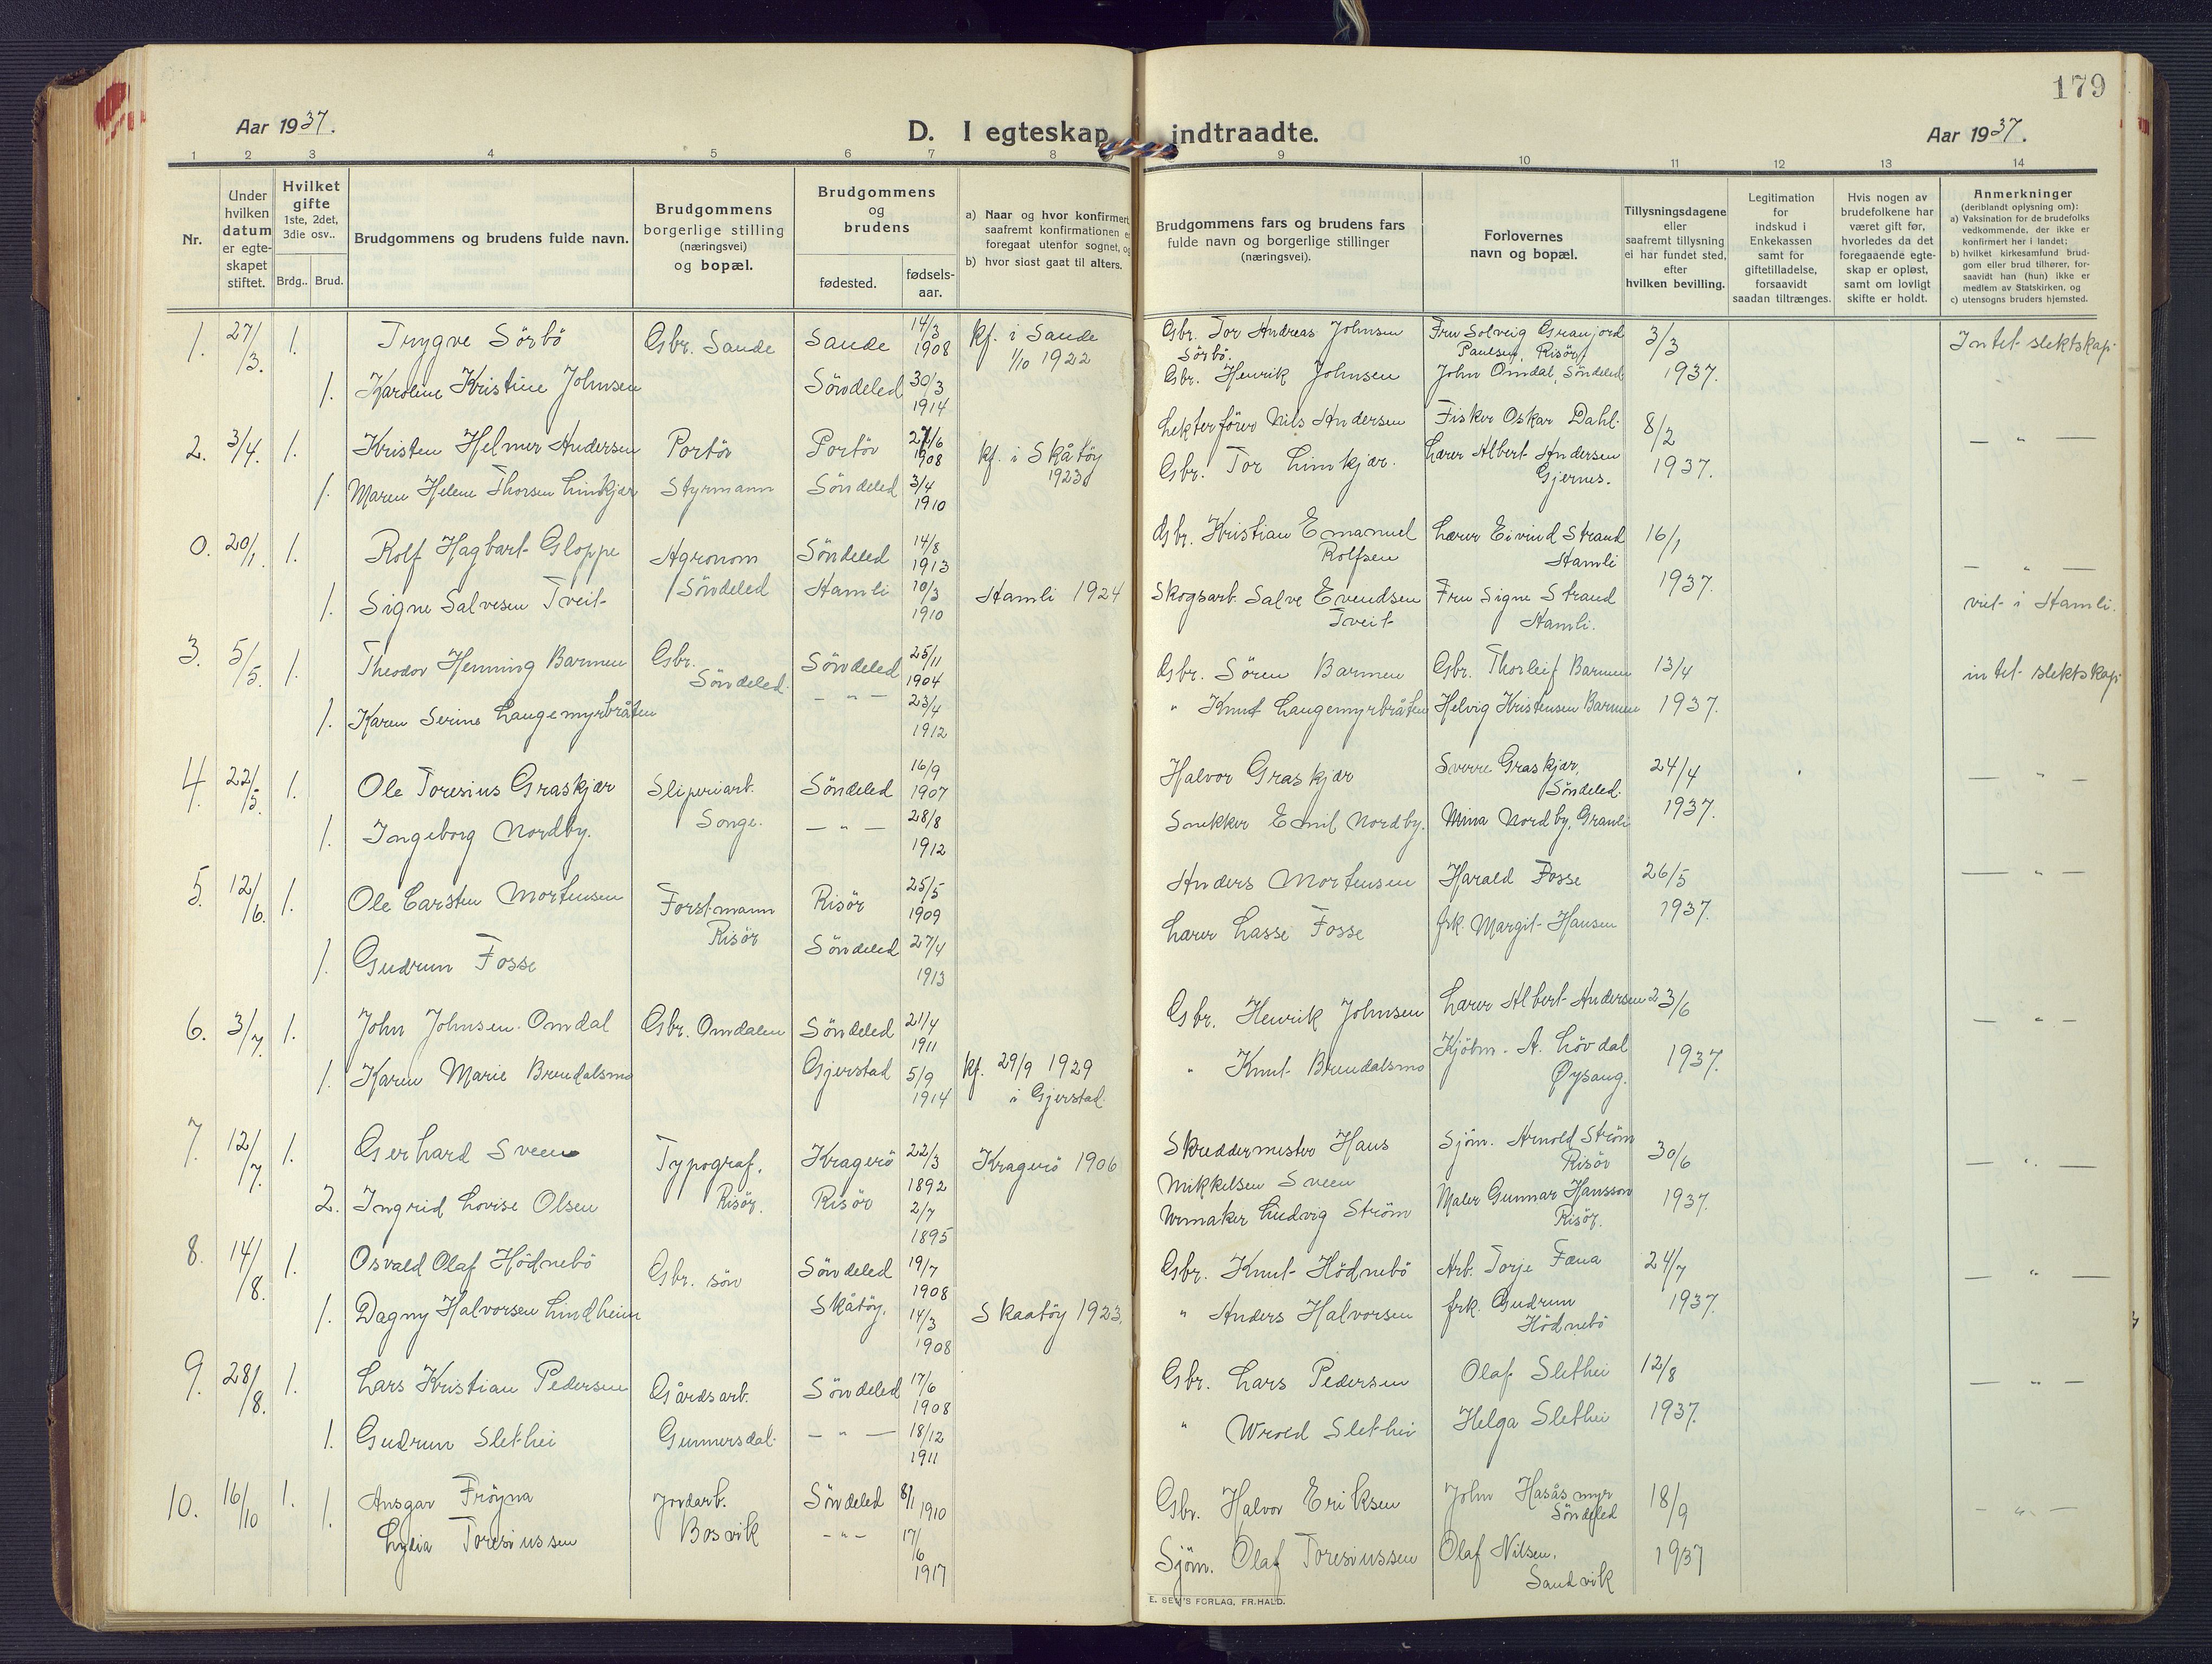 179
Aar 1937.
D. I egteskap indtraadte.
Aar 1937.
1 2 3 4 5 6 7 8 9 10 11 12 13 14
Nr.
Under hvilken datum er egte-skapet stiftet.
Hvilket gifte 1ste, 2det, 3die osv..
Brdg.. Brud.
Brudgommens og brudens fulde navn.
Brudgommens borgerlige stilling (næringsvei) og bopæl.
Brudgommens og brudens
fødested.
fødsels-aar.
a) Naar og hvor konfirmert
saafremt konfirmationen e
foregaat utenfor sognet, og
b) hvor sidst gaat til alters.
Brudgommens fars og brudens fars
fulde navn og borgerlige stillinger
(næringsvei).
Forlovernes
navn og bopæl.
Tillysningsdagene
eller
saafremt tillysning
ei har fundet sted,
efter
hvilken bevilling.
Legitimation
for
indskud i
Enkekassen
samt for
giftetilladelse,
forsaavidt
saadan tiltrænges.
Hvis nogen av
brudefolkene har
været gift før,
hvorledes da det
foregaaende egte-
skap er opløst,
samt om lovligt
skifte er holdt.
Anmerkninger
(deriblandt oplysning om):
a) Vaksination for de brudefolks
vedkommende, der ikke er
konfirmert her i landet;
b) hvilket kirkesamfund brud-
gom eller brud tilhører, for-
saavidt han (hun) ikke er
medlem av Statskirken, og
c) utensogns bruders hjemsted.
1. 27/3. 1. Trygve Sörbö Gbr. Sande Sande 14/3 1908 kf. i Sande 1/10 1922 Gbr. Tor Andreas Johnsen Sörbö. Fru Solveig Granjord Paulsen, Risör 3/3 Intet slektskap
1. Karoline Kristine Johnsen Söndeled 30/3 1914 Gbr. Henrik Johnsen John Omdal, Söndeled 1937.
2. 3/4. 1. Kristen Helmer Andersen Portör Portör 27/6 1908 kf. i Skåtöy 1923 Lekterförer Nils Andersen Fisker Oskar Dahl. 8/2 — " —
1. Maren Helene Thorsen Limkjær Styrmann Söndeled 3/4 1910 Gbr. Tor Limkjær. Lærer Albert Andersen Gjernes. 1937.
0. 20/1. 1. Rolf Hagbart Gloppe Agronom Söndeled 14/8 1913 Gbr. Kristian Emanuel Rolfsen Lærer Eivind Strand Hamli 16/1 — " —
1. Signe Salvesen Tveit Söndeled Hamli 10/3 1910 Hamli 1924 Skogsarb. Salve Evendsen Tveit Fru Signe Strand Hamli. 1937. viet i Hamli.
3. 5/5. 1. Theodor Henning Barmen Gbr. Söndeled. Söndeled 25/11 1904 Gbr. Sören Barmen Gbr. Thorleif Barmen 13/4 intet slektskap
1. Karen Serine Langemyrbråten — " — 23/4 1912 " Knut Langemyrbråten Helvig Kristensen Barmen 1937.
4. 22/5. 1. Ole Toresius Graskjær Sliperiarb. Söndeled 16/9 1907 Halvor Graskjær Sverre Graskjær, Söndeled. 24/4 — " —
1. Ingeborg Nordby. Songe. — " — 28/8 1912 Snekker Emil Nordby. Mina Nordby, Granli 1937.
5. 12/6. 1. Ole Carsten Mortensen Forstmann Risör 25/5 1909 Anders Mortensen Harald Fosse 26/5 — " —
1. Gudrun Fosse Risör Söndeled 27/4 1913 Lærer Lasse Fosse frk. Margit Hansen 1937.
6. 3/7. 1. John Johnsen Omdal Gbr. Omdalen Söndeled 21/4 1911 Gbr. Henrik Johnsen Lærer Albert Andersen 23/6 — " —
1. Karen Marie Brendalsmo Gjerstad 5/9 1914 kf. 29/9 1929 i Gjerstad. " Knut Brendalsmo Kjöbm. A. Lövdal Øysang. 1937.
7. 12/7. 1. Gerhard Sveen Typograf. Kragerö 22/3 1892 Kragerö 1906 Skreddermester Hans Mikkelsen Sveen Sjöm. Arnold Ström Risör 30/6 — " —
2. Ingrid Lovise Olsen Risör. Risör 2/7 1895 Urmaker Ludvig Ström Maler Gunnar Hansson Risör. 1937.
8. 14/8. 1. Osvald Olaf Hödnebö Gbr. sön Söndeled 19/7 1908 Gbr. Knut Hödnebö Arb. Torje Fæna 24/7 — " —
1. Dagny Halvorsen Lindheim Skåtöy. 14/3 1908 Skaatöy 1923. " Anders Halvorsen frk. Gudrun Hödnebö 1937.
9. 28/8. 1. Lars Kristian Pedersen Gårdsarb. Söndeled 17/6 1908 Gbr. Lars Pedersen Olaf Slethei 12/8 — " —
1. Gudrun Slethei Gunnersdal. — " — 18/12 1911 " Wrold Slethei Helga Slethei 1937.
10. 16/10 1. Ansgar Fröyna Jordarb. Söndeled 8/1 1910 Gbr. Halvor Eriksen John Hasåsmyr Söndeled 18/9 — " —
1. Lydia Toresiussen Bosvik — " — 17/6 1917 Sjöm. Olaf Toresiussen Olaf Nilsen, Sandvik 1937
E. SEM'S FORLAG, FR.HALD.